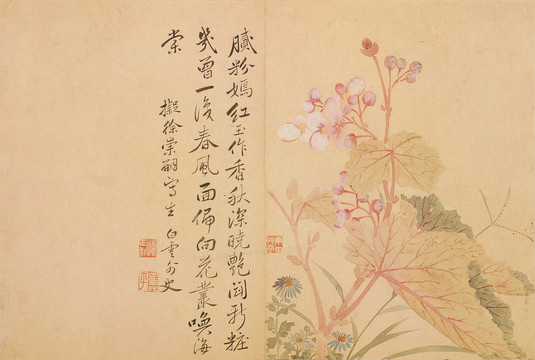 膩粉嫣紅玉作香秋深曉艷鬪新粧
幾曾一春風面偏向花叢喚海
棠
擬徐崇嗣寫生
白雲外史